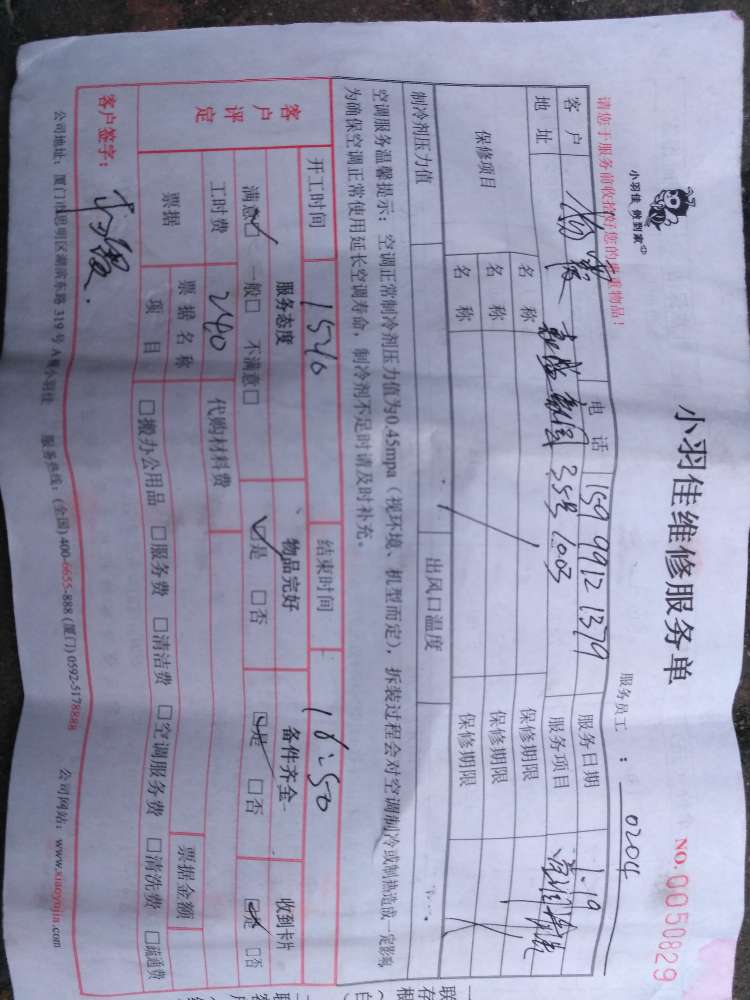 小羽佳 做到家
小羽佳维修服务单
NO. 0050829
请您于服务前收拾好您的贵重物品!
服务员工: 0204
客户 电话 159 9912 1379 服务日期 1.19
地址 35号1003 服务项目
保修项目 名称 保修期限
名称 保修期限
名称 保修期限
制冷剂压力值 出风口温度
空调服务温馨提示:空调正常制冷剂压力值为0.45mpa(视环境、机型而定),拆装过程会对空调制冷或制热造成一定影响
为确保空调正常使用延长空调寿命,制冷剂不足时请及时补充。
开工时间 1540 结束时间 16:50
客户评定 服务态度 物品完好 备件齐全 收到卡片
满意☑ 一般□ 不满意□ ☑是 □否 ☑是 □否 ☑是 □否
工时费 240 代购材料费
票据 票据名称 票据金额
项目 □搬办公用品 □服务费 □清洁费 □空调服务费 □清洗费 □疏通费
客户签字:
公司地址:厦门市思明区湖滨东路319号A幢小羽佳 服务热线:(全国)400-6655-888 (厦门)0592-5178888 公司网站:www.xiaoyujia.com